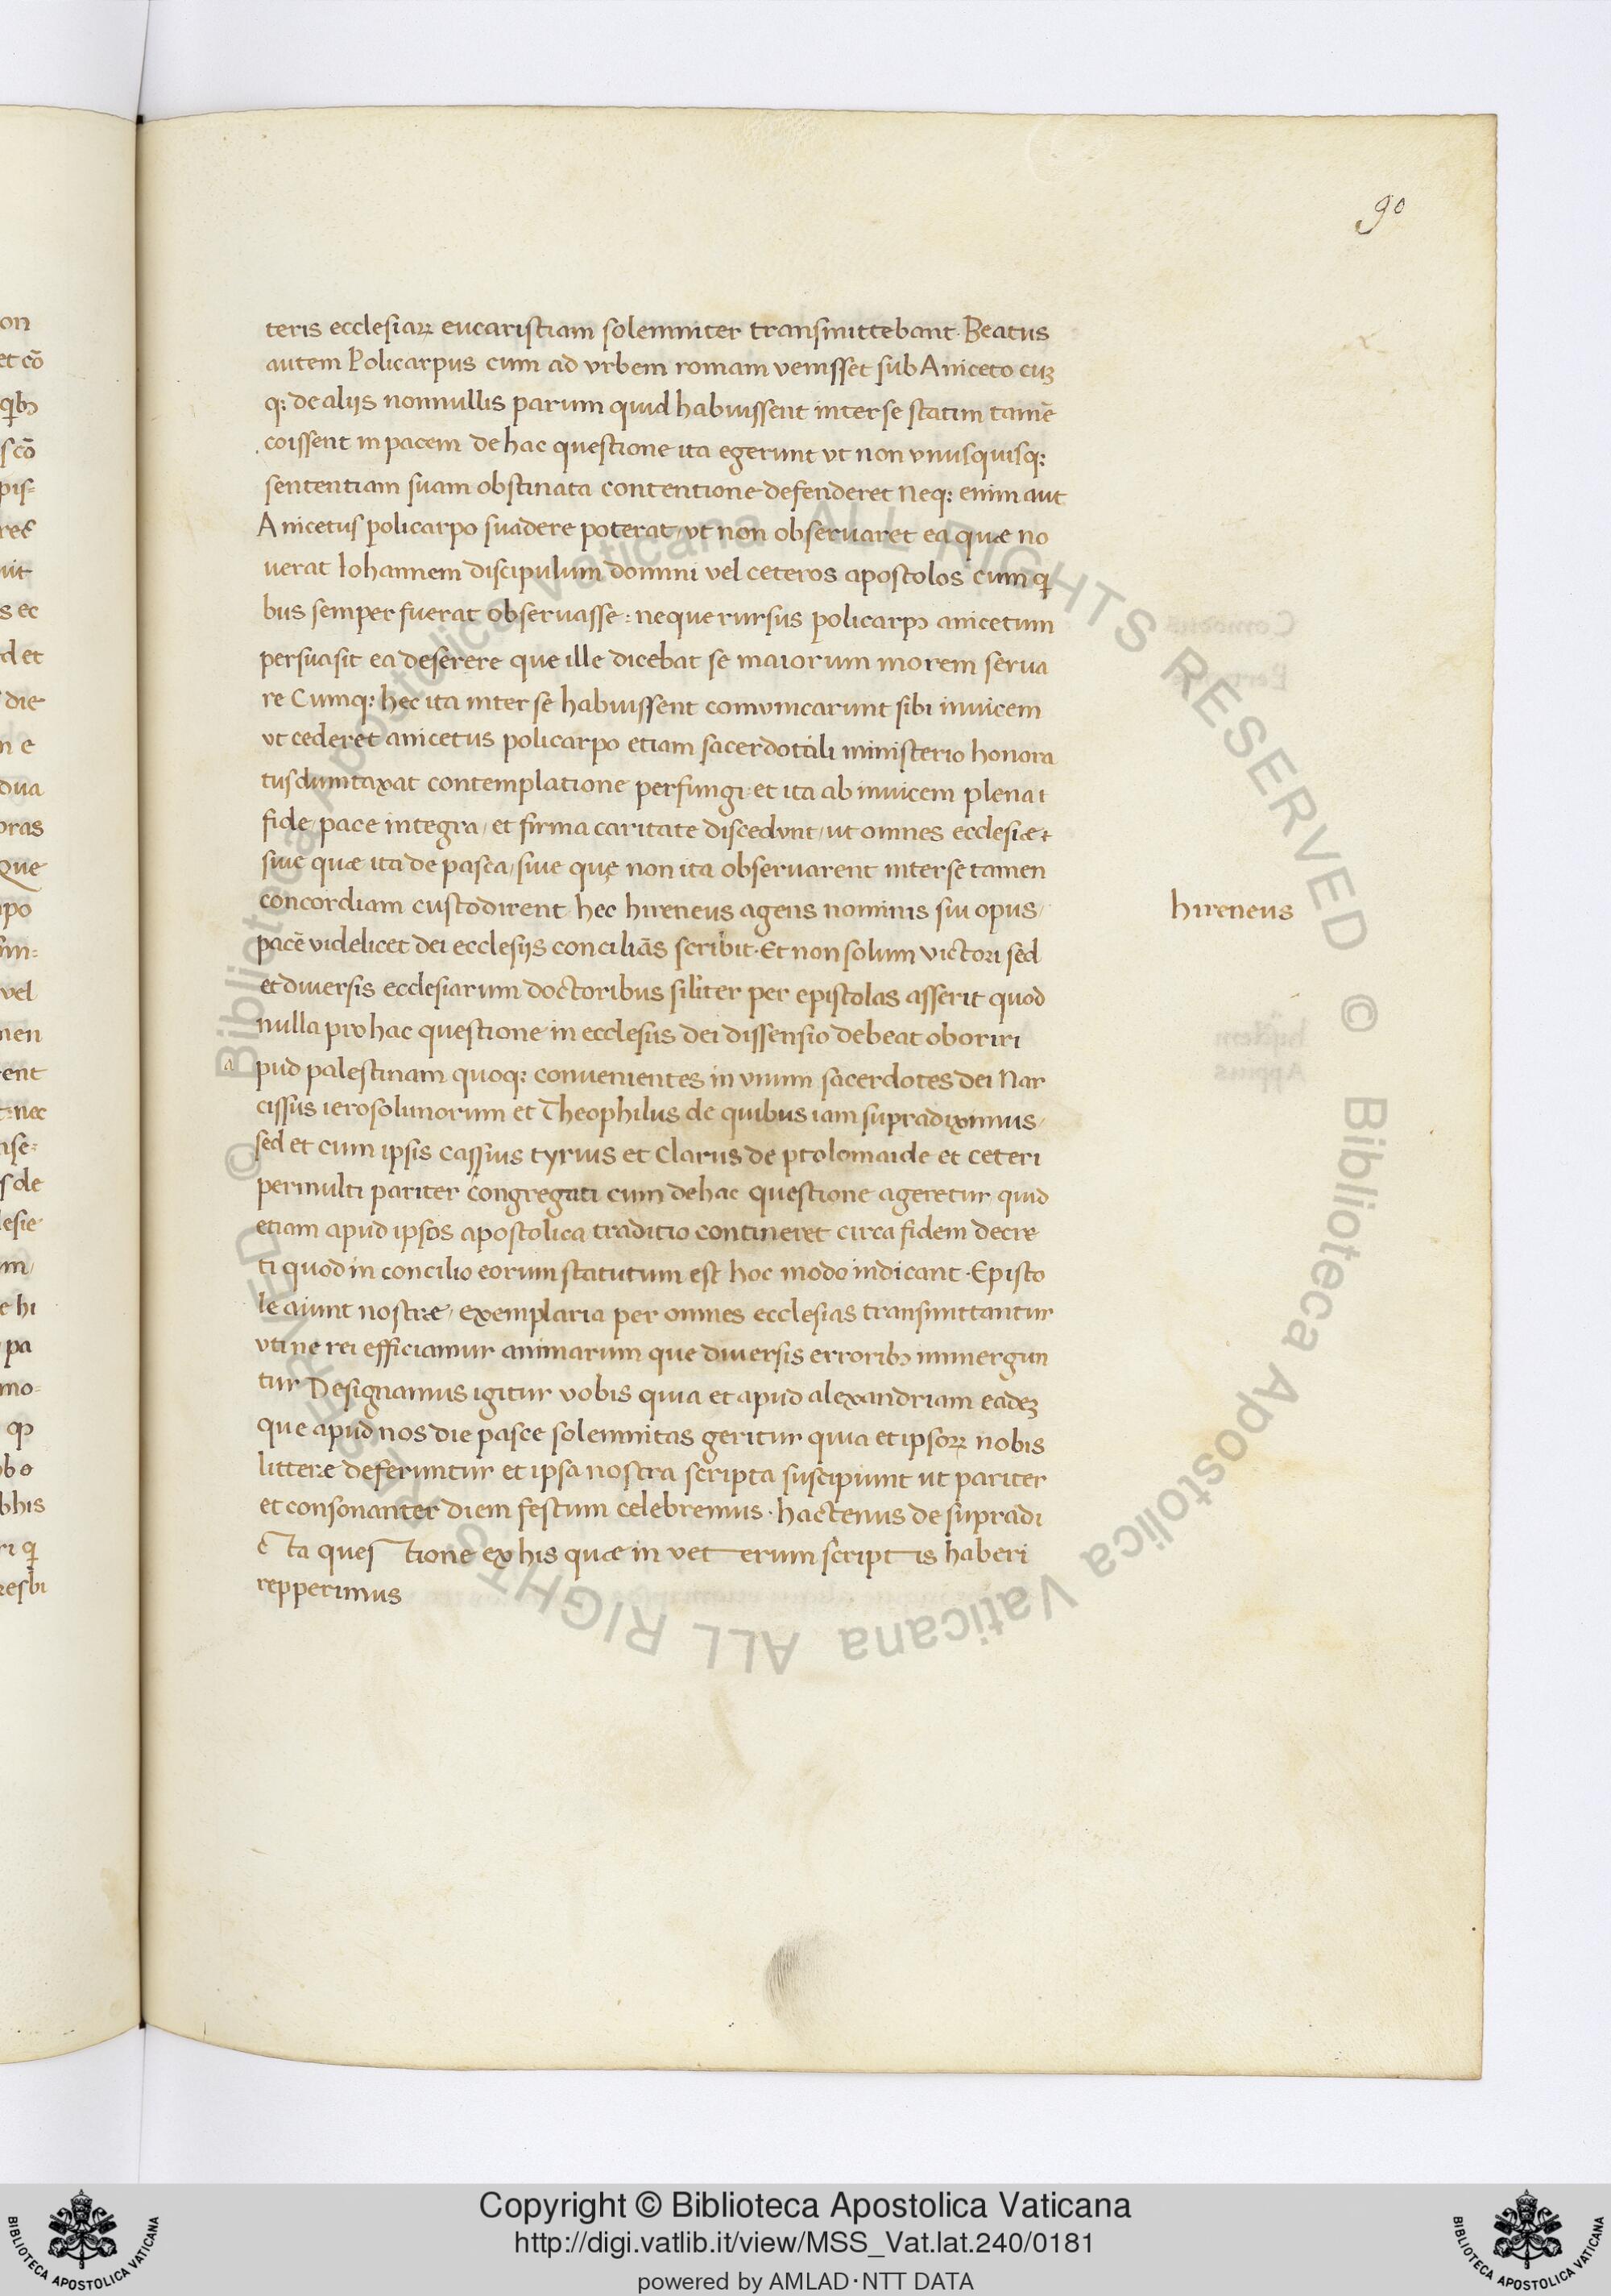 90
teris ecclesiaꝝ eucaristiam solemniter transmittebant. Beatus
autem Policarpus cum ad vrbem romam venisset sub Aniceto cuꝫ
qꝫ de alijs nonnullis parum quid habuissent inter se statim tamē
coissent in pacem de hac questione ita egerunt vt non vnusquisqꝫ
sententiam suam obstinata contentione defenderet Neqꝫ enim aut
Anicetus policarpo suadere poterat, vt non obseruaret ea quæ no
uerat Iohannem discipulum domini vel ceteros apostolos cum qi
bus semper fuerat obseruasse: neque rursus policarpꝰ anicetum
persuasit ea deserere que ille dicebat se maiorum morem serua
re Cumqꝫ hec ita inter se habuissent comunicarunt sibi inuicem
vt cederet anicetus policarpo etiam sacerdotali ministerio honora
tus dumtaxat contemplatione perfungi et ita ab inuicem plena
fide, pace integra, et firma caritate discedunt, ut omnes ecclesiæ
siue quæ ita de pasca, siue quę non ita obseruarent inter se tamen
concordiam custodirent hec hireneus agens nominis sui opus,
pacē videlicet dei ecclesijs conciliās scribit. Et non solum victori sed
et diuersis ecclesiarum doctoribus siliter per epistolas asserit quod
nulla pro hac questione in ecclesiis dei dissensio debeat oboriri
a pud palestinam quoqꝫ conuenientes in vnum sacerdotes dei Nar
cissus ierosolimorum et Theophilus de quibus iam supradiximus,
sed et cum ipsis cassius tyrius et Clarus de ptolomaide et ceteri
permulti pariter congregati cum de hac questione ageretur quid
etiam apud ipsos apostolica traditio contineret circa fidem decre
ti quod in concilio eorum statutum est hoc modo indicant. Episto
le aiunt nostræ, exemplaria per omnes ecclesias transmittantur
vti ne rei efficiamur animarum que diuersis erroribꝰ immergun
tur Designamus igitur vobis quia et apud alexandriam eadeꝫ
que apud nos die pasce solemnitas geritur quia et ipsoꝝ nobis
litteræ deferuntur et ipsa nostra scripta suscipiunt ut pariter
et consonanter diem festum celebremus. hactenus de supradi
cta questione ex his quæ in veterum scriptis haberi
repperimus
hireneus
Copyright © Biblioteca Apostolica Vaticana
http://digi.vatlib.it/view/MSS_Vat.lat.240/0181
powered by AMLAD·NTT DATA
BIBLIOTECA APOSTOLICA VATICANA
BIBLIOTECA APOSTOLICA VATICANA
© Biblioteca Apostolica Vaticana ALL RIGHTS RESERVED © Biblioteca Apostolica Vaticana ALL RIGHTS RESERVED